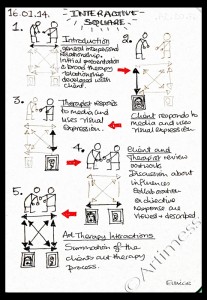 16.01.14.
INTERACTIVE
SQUARE
1.
Introduction
general interpersonal
relationship.
Initial presentation
a broad therapy
relationship
developed with
client
2.
Client responds to
media and uses
visual expression.
3.
Therapist responds
to media and
uses visual
expression.
4.
Client and
Therapist review
artwork
Discussion about
influences
Collaboration
or directive
response are
viewed + described
5.
Art Therapy Interactions
Summation of the
clients art therapy
process.
© Artimess